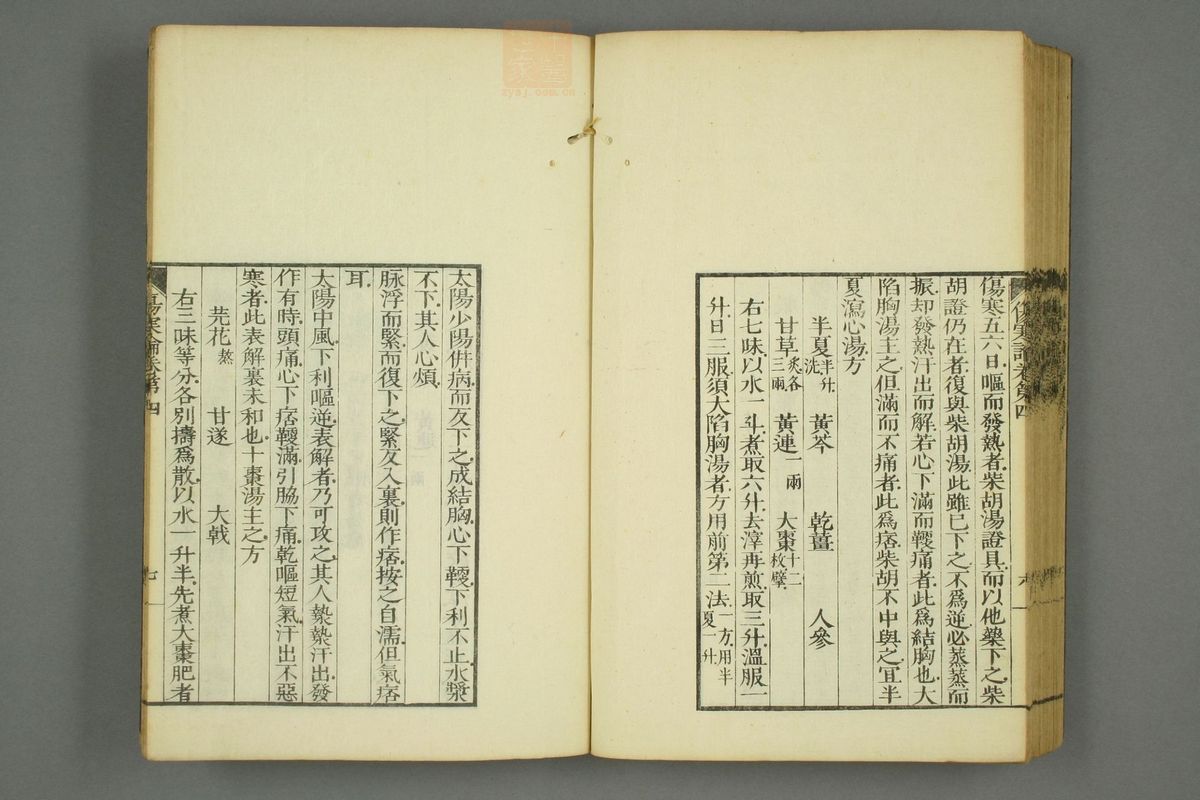 傷寒五六日.嘔而發熱者.柴胡湯證具.而以他藥下之.柴
胡證仍在者.復與柴胡湯.此雖已下之.不爲逆.必蒸蒸而
振.却發熱汗出而解.若心下滿而鞕痛者.此爲結胸也.大
陷胸湯主之.但滿而不痛者.此爲痞.柴胡不中與之.宜半
夏瀉心湯方
半夏半升洗 黃芩 乾薑 人參
甘草炙各三兩 黃連一兩 大棗十二枚擘
右七味.以水一斗.煮取六升.去滓再煎.取三升.溫服一
升.日三服.須大陷胸湯者.方用前第二法.一方.用半夏一升.
傷寒論卷第四 六
太陽少陽併病.而反下之.成結胸.心下鞕.下利不止.水漿
不下.其人心煩.
脉浮而緊.而復下之.緊反入裏.則作痞.按之自濡.但氣痞
耳.
太陽中風.下利嘔逆.表解者.乃可攻之.其人漐漐汗出.發
作有時.頭痛.心下痞鞕滿.引脇下痛.乾嘔短氣.汗出不惡
寒者.此表解裏未和也.十棗湯主之.方
芫花熬 甘遂 大戟
右三味等分.各別擣爲散.以水一升半.先煮大棗肥者
傷寒論卷第四 七
zysj.com.cn